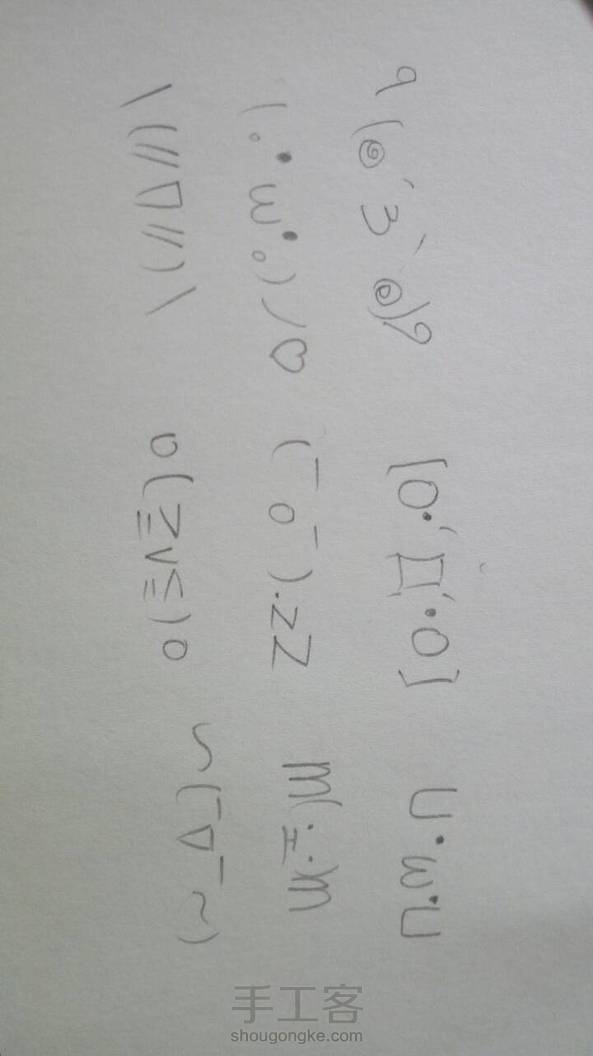 q(◎´3`◎)9 [O·´□`·O] U·ω·U
(｡•ω•｡)ノ♡ (¯o¯).zZ m(·エ·m
\(//∇//)\ o(≧v≦)o ~(¯▽¯~)
手工客
shougongke.com